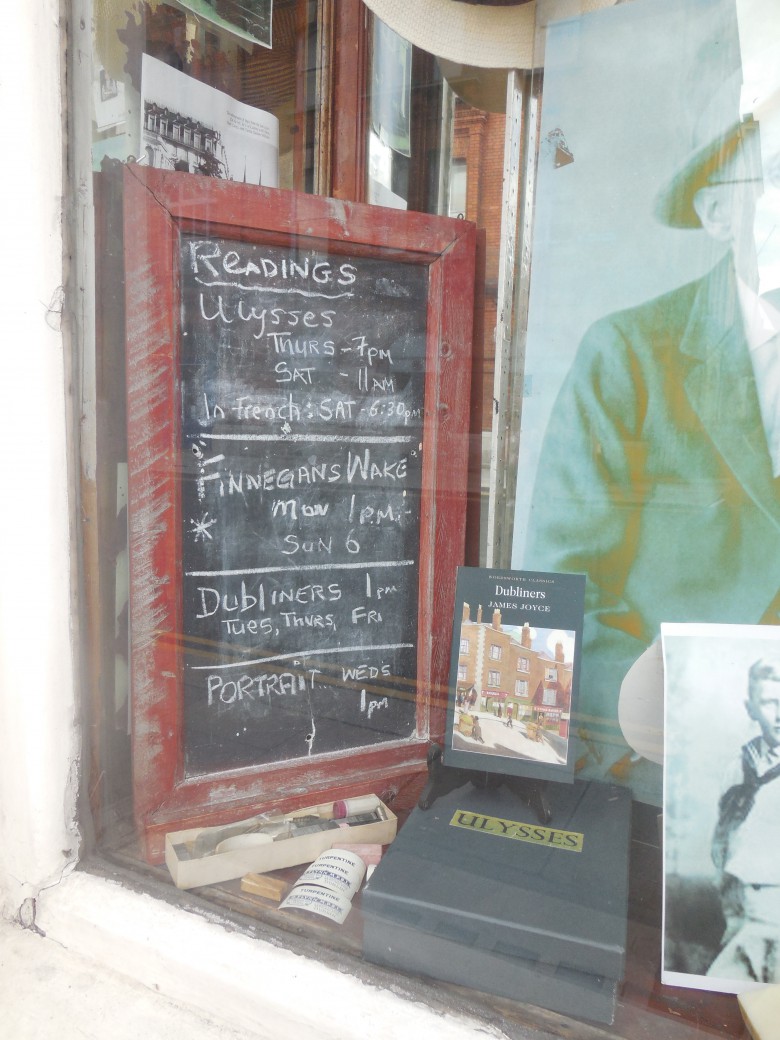 READINGS
Ulysses
THURS - 7PM
SAT - 11AM
In French: SAT - 6:30PM
FINNEGANS WAKE
MON 1 P.M.
SUN 6
DUBLINERS 1PM
TUES, THURS, FRI
PORTRAIT... WEDS
1pm
WORDSWORTH CLASSICS
Dubliners
JAMES JOYCE
ULYSSES
TURPENTINE
TURPENTINE
TURPENTINE